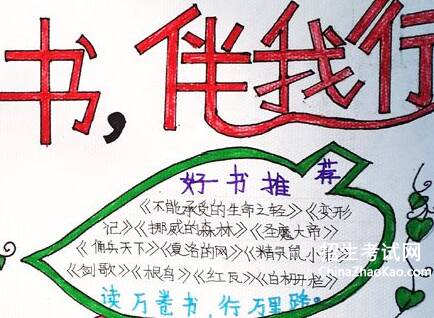 书,伴我行
好书推荐
《不能承受的生命之轻》《变形
记》《挪威的森林》《圣魔大帝》
《俏乐天下》《夏洛的网》《精灵鼠小弟》
《剑歌》《根鸟》《红瓦》《白栅栏》
读万卷书,行万里路。
招生考试网
ChinaZhaoKao.com